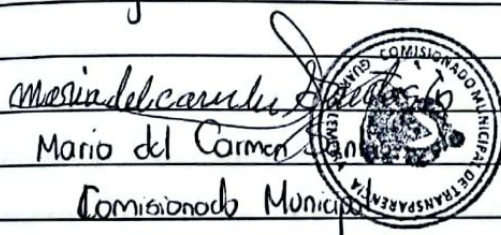 Maria del Carmen
Mario del Carmen
Comisionado Municipal
COMISIONADO MUNICIPAL DE TRANSPARENCIA